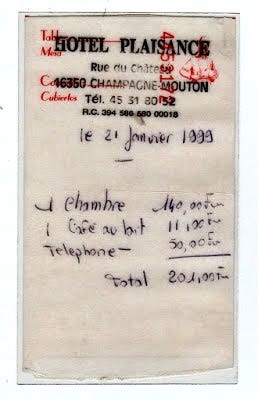 HOTEL PLAISANCE
Mesa
Rue du Château
16350 CHAMPAGNE-MOUTON
Cubiertos Tél. 45 31 80 52
R.C. 394 586 580 00018
le 21 Janvier 1999
1 Chambre 140,00Frs
1 Café au lait 11,00Frs
Telephone - 50,00Frs
Total 201,00Frs